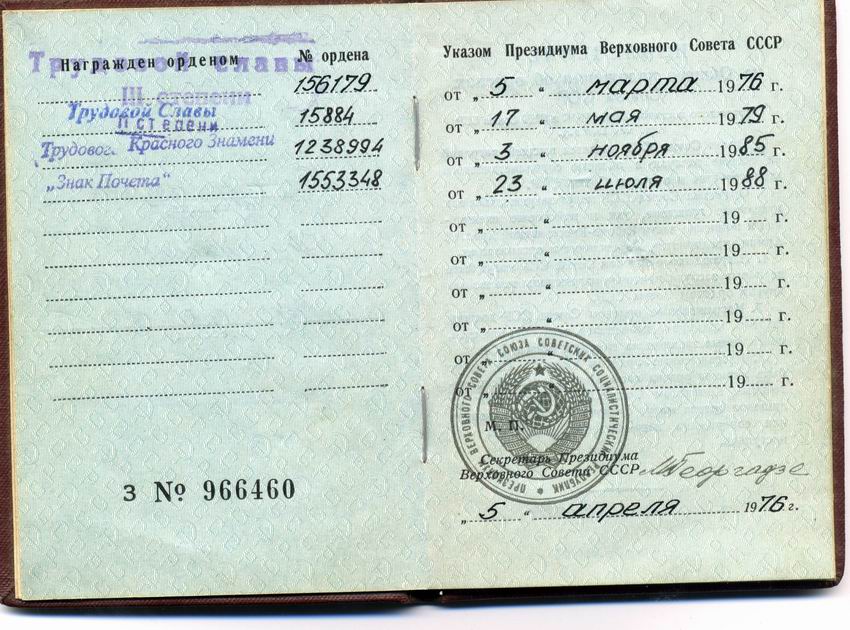 Награжден орденом № ордена
Трудовой славы 156179
III степени
Трудовой Славы 15884
II степени
Трудового Красного Знамени 1238994
„Знак Почета“ 1553348
З № 966460
Указом Президиума Верховного Совета СССР
от „ 5 “ марта 1976 г.
от „ 17 “ мая 1979 г.
от „ 3 “ ноября 1985 г.
от „ 23 “ июля 1988 г.
от „ “ 19 г.
от „ “ 19 г.
от „ “ 19 г.
от „ “ 19 г.
от „ “ 19 г.
от „ “ 19 г.
ПРЕЗИДИУМ ВЕРХОВНОГО СОВЕТА СОЮЗА СОВЕТСКИХ СОЦИАЛИСТИЧЕСКИХ РЕСПУБЛИК
М. П.
Секретарь Президиума
Верховного Совета СССР МГеоргадзе
„ 5 “ апреля 1976 г.